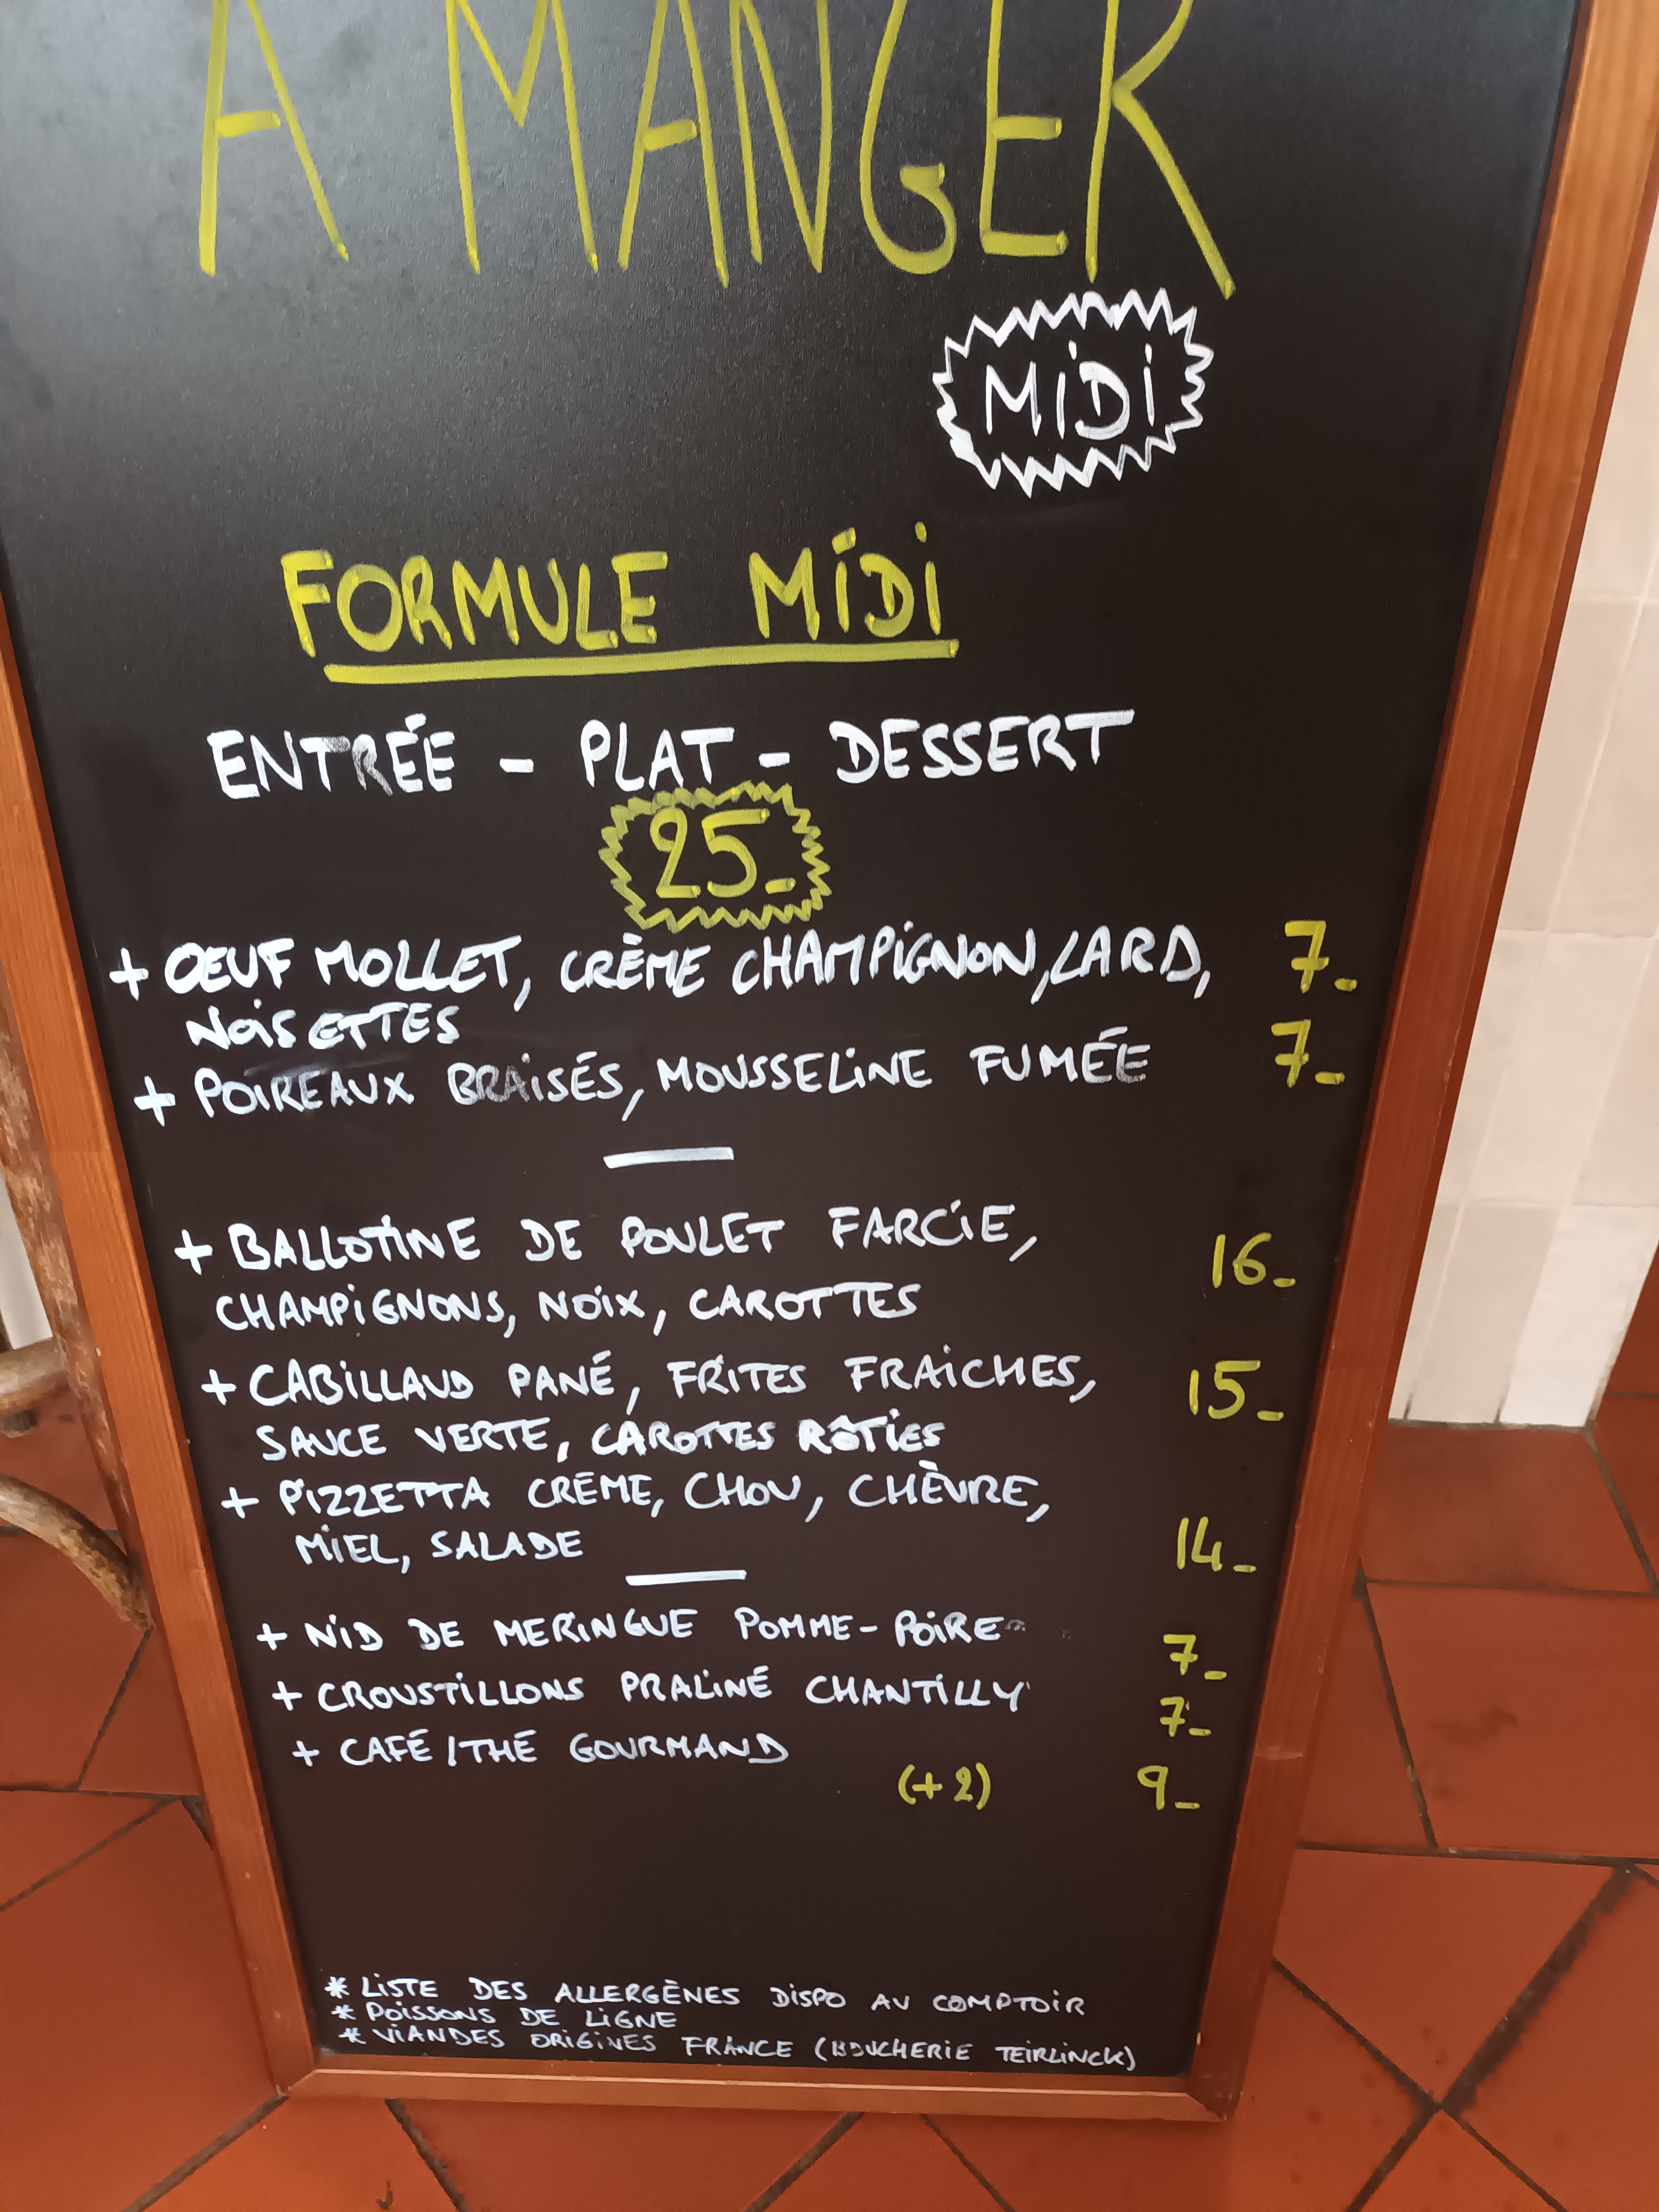 A MANGER
MIDI
FORMULE MIDI
ENTRÉE - PLAT - DESSERT
25-
+ ŒUF MOLLET, CRÈME CHAMPIGNON, LARD, 7-
NOISETTES
+ POIREAUX BRAISÉS, MOUSSELINE FUMÉE 7-
+ BALLOTINE DE POULET FARCIE,
CHAMPIGNONS, NOIX, CAROTTES 16-
+ CABILLAUD PANÉ, FRITES FRAICHES, 15-
SAUCE VERTE, CAROTTES RÔTIES
+ PIZZETTA CRÈME, CHOU, CHÈVRE,
MIEL, SALADE 14-
+ NID DE MERINGUE POMME-POIRE 7-
+ CROUSTILLONS PRALINÉ CHANTILLY 7-
+ CAFÉ/THÉ GOURMAND
(+2) 9-
* LISTE DES ALLERGÈNES DISPO AU COMPTOIR
* POISSONS DE LIGNE
* VIANDES ORIGINES FRANCE (BOUCHERIE TEIRLINCK)